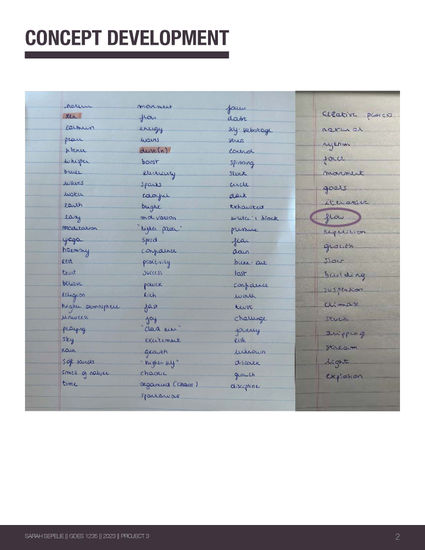 CONCEPT DEVELOPMENT
zen
calmness
peace
whisper
waves
water
earth
easy
meditation
yoga
harmony
rest
trust
believe
religion
higher atmosphere
playing
sky
rain
soft sounds
smell of nature
time
movement
flow
energy
waves
drive(n)
boost
electricity
sparks
caught
bright
motivation
"higher power"
speed
confidence
positivity
success
power
rich
fast
joy
"clear mind"
excitement
growth
"higher sky"
chaotic
organised (chaos)
spontaneous
force
doubt
self-sabotage
stress
control
spinning
stuck
circle
dark
exhausted
writer's block
pressure
fear
drain
burn-out
lost
confidence
work
twist
challenge
poverty
risk
unknown
disaster
growth
discipline
creative process
natural
rythm
force
movement
goals
alternative
flow
repetition
growth
slow
building
suspension
climax
stuck
dripping
stream
light
explosion
SARAH SEPELIE || GDES 1235 || 2023 || PROJECT 3
2